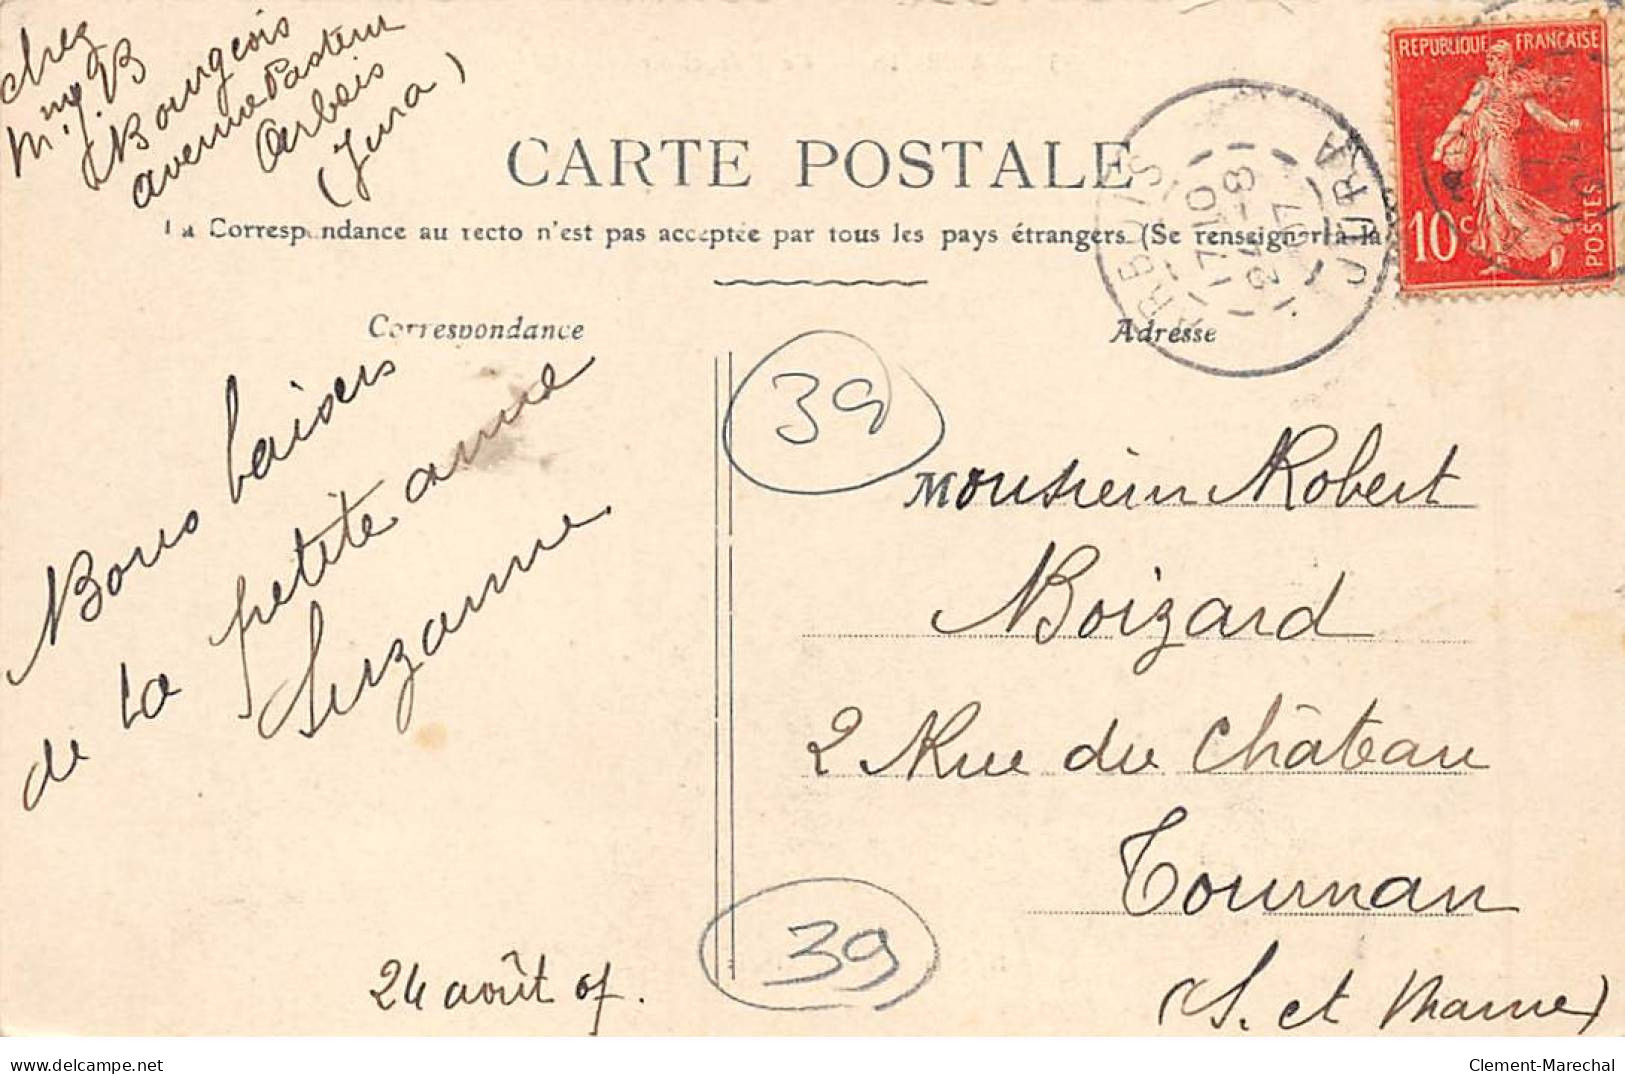 chez
Mme J. B
Bourgeois
avenue Pasteur
Arbois
(Jura)
CARTE POSTALE
La Correspondance au recto n'est pas acceptée par tous les pays étrangers (Se renseigner à la
RÉPUBLIQUE FRANÇAISE
10c
POSTES
ARBOIS
17 10
24 - 8
07
JURA
Correspondance
Adresse
39
Bons baisers
de la petite amie
Suzanne.
24 août 07.
Monsieur Robert
Boizard
2 Rue du Château
Tournan
(S. et Marne)
39
delcampe.net
Clement-Marechal